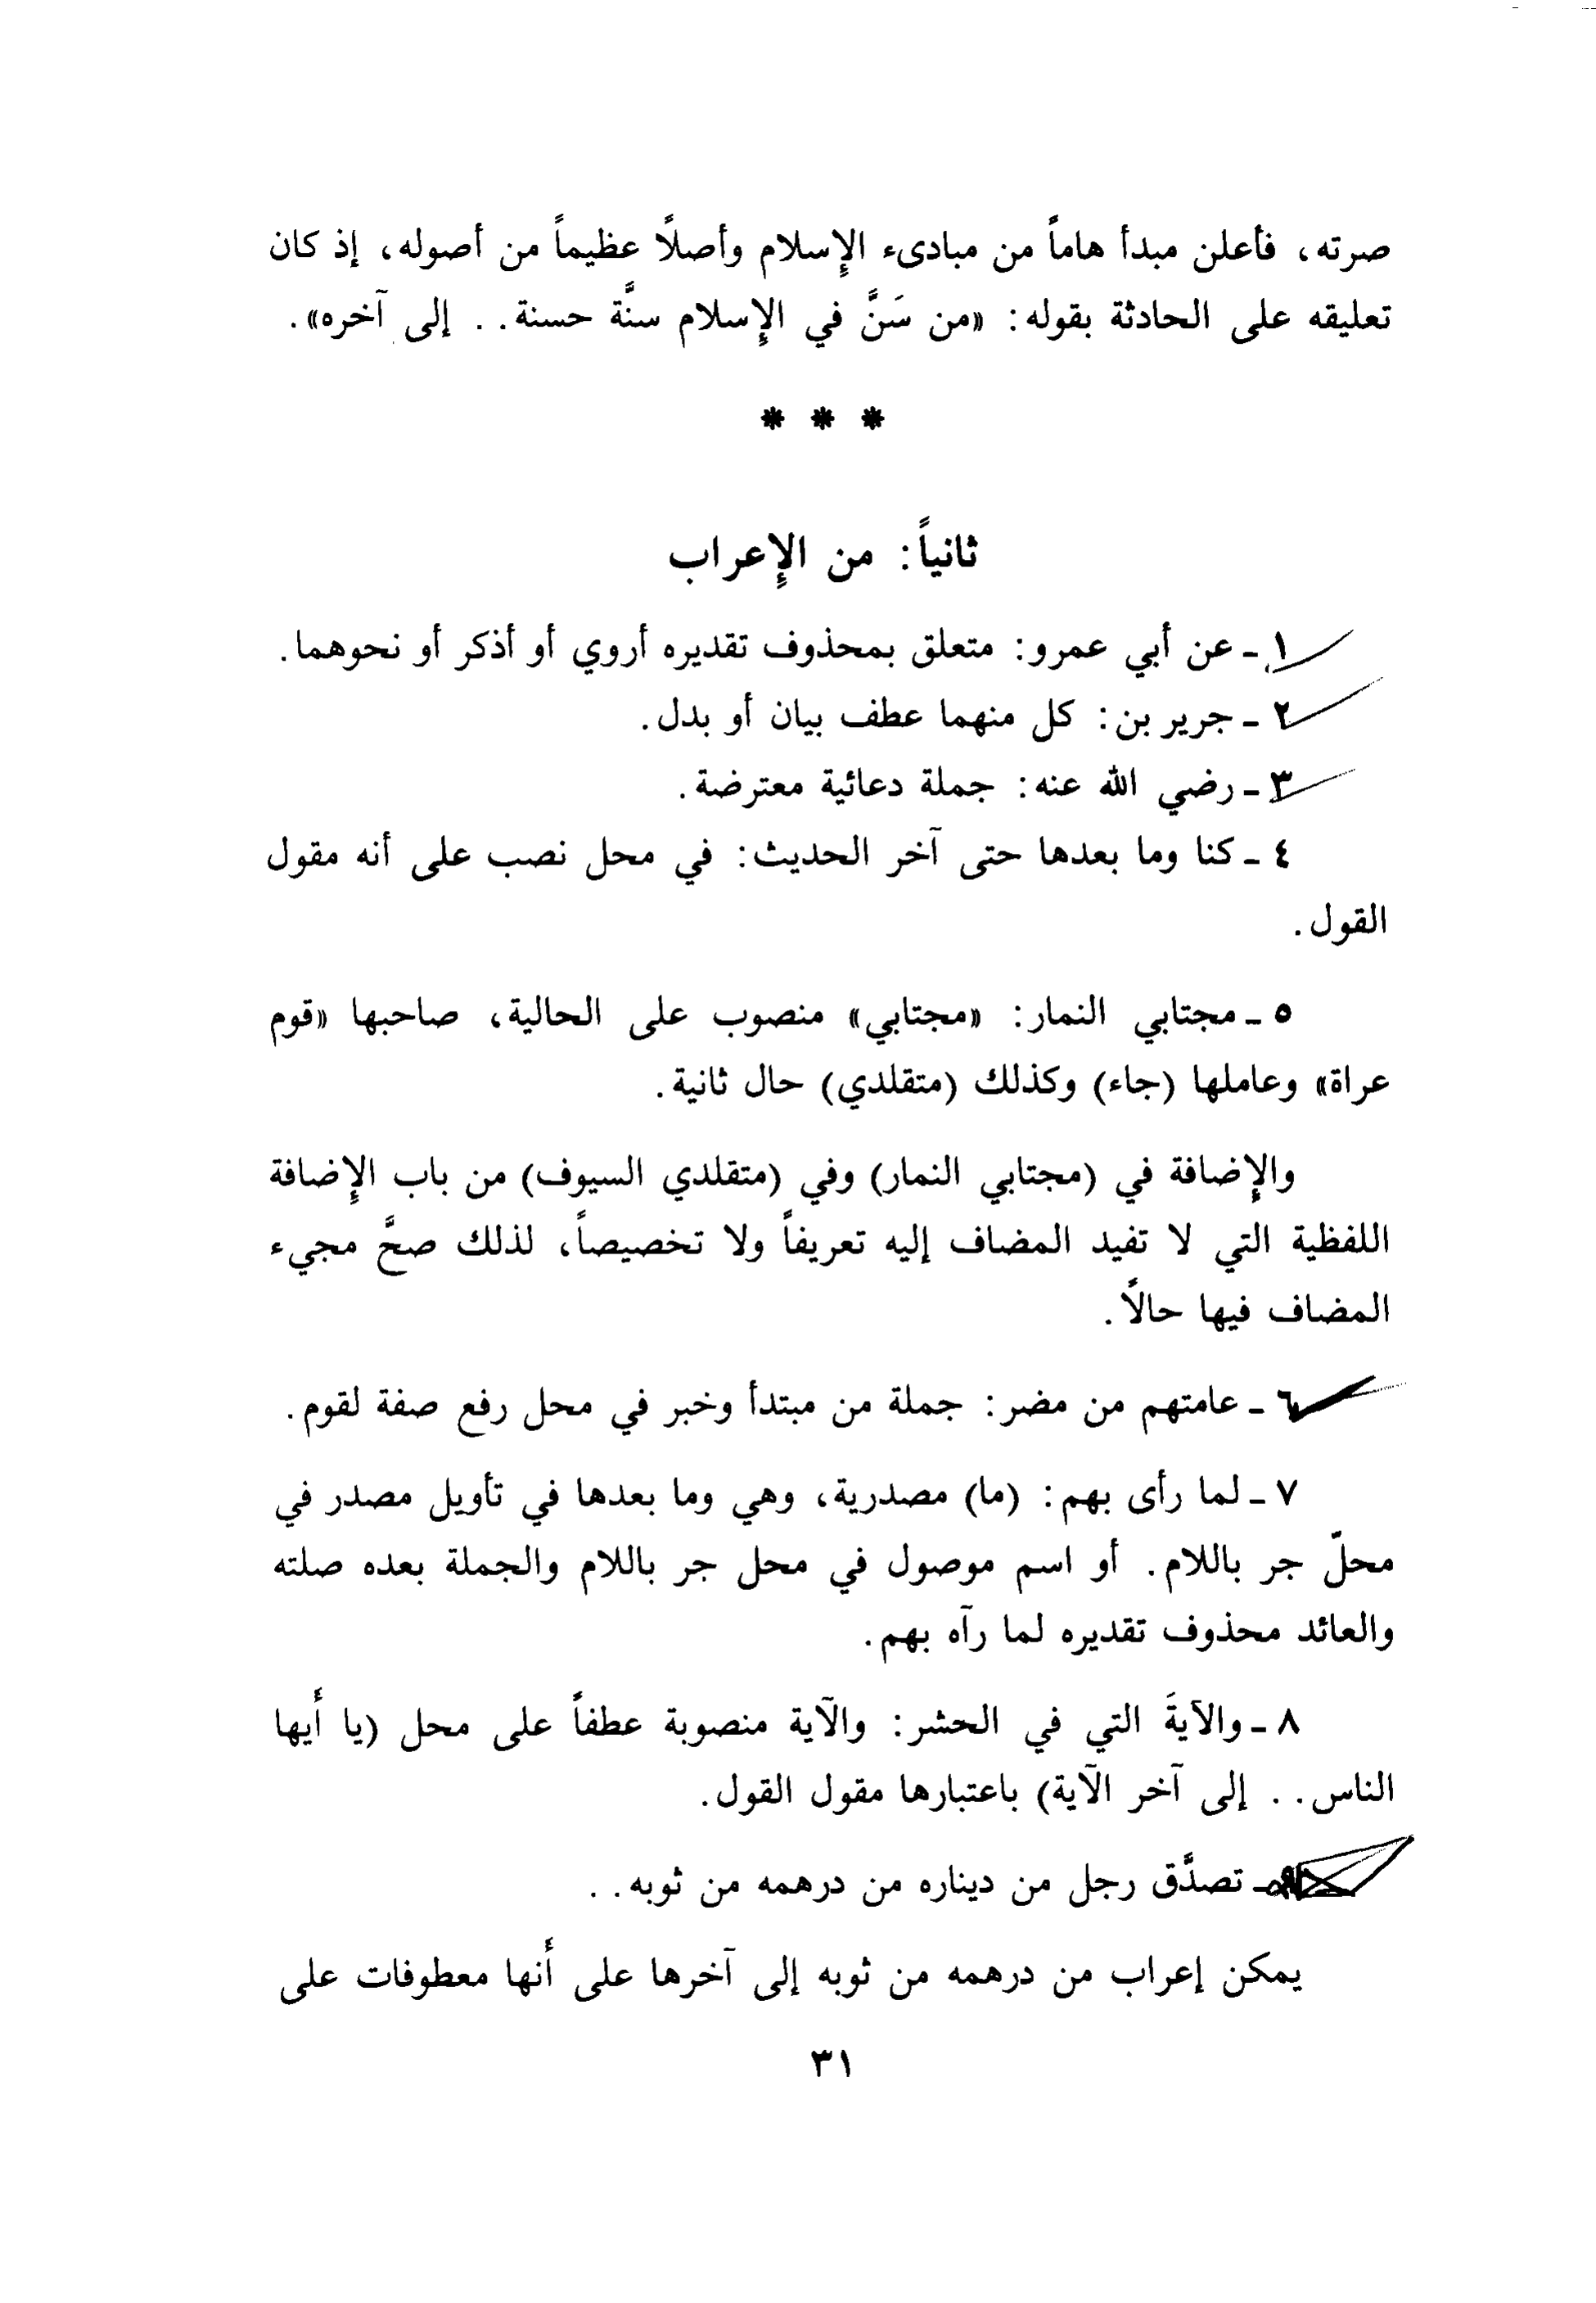 صرته، فأعلن مبدأ هاماً من مبادىء الإسلام وأصلاً عظيماً من أصوله، إذ كان
تعليقه على الحادثة بقوله: «من سَنَّ في الإسلام سنَّة حسنة.. إلى آخره».
* * *
ثانياً: من الإعراب
١ - عن أبي عمرو: متعلق بمحذوف تقديره أروي أو أذكر أو نحوهما.
٢ - جرير بن: كل منهما عطف بيان أو بدل.
٣ - رضي الله عنه: جملة دعائية معترضة.
٤ - كنا وما بعدها حتى آخر الحديث: في محل نصب على أنه مقول
القول.
٥ - مجتابي النمار: «مجتابي» منصوب على الحالية، صاحبها «قوم
عراة» وعاملها (جاء) وكذلك (متقلدي) حال ثانية.
والإضافة في (مجتابي النمار) وفي (متقلدي السيوف) من باب الإضافة
اللفظية التي لا تفيد المضاف إليه تعريفاً ولا تخصيصاً، لذلك صحَّ مجيء
المضاف فيها حالاً.
٦ - عامتهم من مضر: جملة من مبتدأ وخبر في محل رفع صفة لقوم.
٧ - لما رأى بهم: (ما) مصدرية، وهي وما بعدها في تأويل مصدر في
محلّ جر باللام. أو اسم موصول في محل جر باللام والجملة بعده صلته
والعائد محذوف تقديره لما رآه بهم.
٨ - والآيةَ التي في الحشر: والآية منصوبة عطفاً على محل (يا أَيها
الناس.. إلى آخر الآية) باعتبارها مقول القول.
٩ - تصدَّق رجل من ديناره من درهمه من ثوبه..
يمكن إعراب من درهمه من ثوبه إلى آخرها على أَنها معطوفات على
٣١